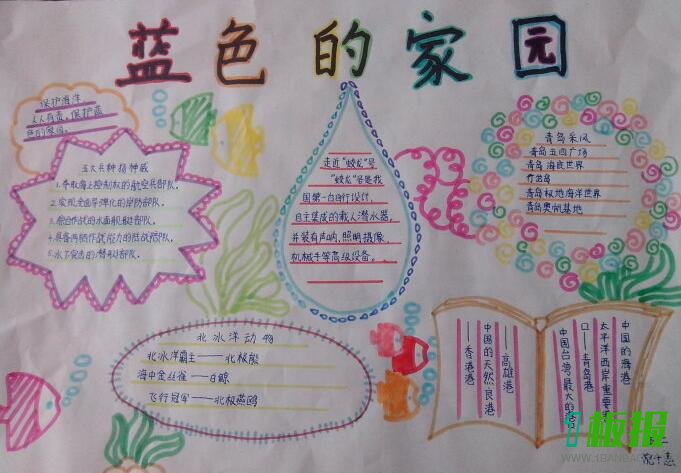 蓝色的家园
保护海洋
人人有责，保护蓝
色的家园。
五大兵种扬神威
1.夺取海上控制权的航空兵部队。
2.实现全面导弹化的岸防部队。
3.能合作战的水面舰艇部队。
4.具备两栖作战能力的陆战部队。
5.水下突击的潜艇部队。
走近"蛟龙"号
"蛟龙"号是我
国第一台自行设计、
自主集成的载人潜水器，
并装有声呐、照明、摄像、
机械手等高级设备。
青岛采风
青岛五四广场
青岛海底世界
竹岔岛
青岛极地海洋世界
青岛奥帆基地
北冰洋动物
北冰洋霸主——北极熊
海中金丝雀——白鲸
飞行冠军——北极燕鸥
中国的海港
太平洋西岸重要
口——青岛港
中国台湾最大的
——高雄港
中国的天然良港
——香港港
1板报
WWW.1BANBAO